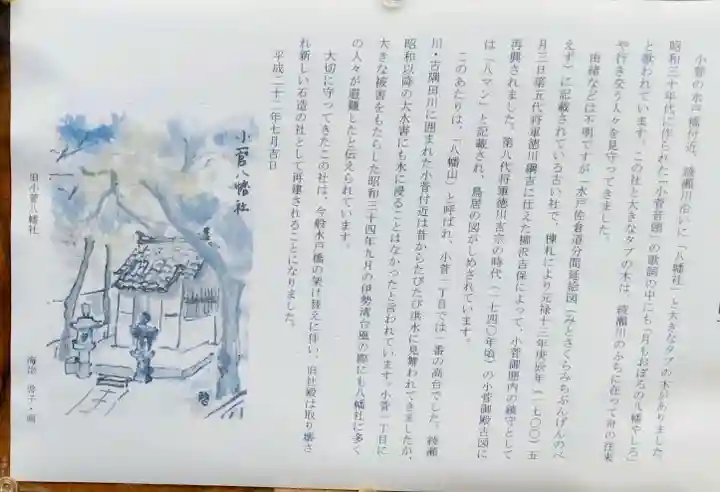 小菅の水戸橋付近、綾瀬川沿いに「八幡社」と大きなタブの木がありました。
昭和三十年代に作られた「小菅音頭」の歌詞の中にも「月もおぼろの八幡やしろ」
と歌われています。この社と大きなタブの木は、綾瀬川のふちに在って舟の往来
や行き交う人々を見守ってきました。
由緒などは不明ですが、水戸佐倉道分間延絵図（みとさくらみちぶんけんのべ
えず）に記載されている古い社で、棟札により元禄十三年庚辰年（一七〇〇）五
月三日第五代将軍徳川綱吉に仕えた柳沢吉保によって、小菅御囲内の鎮守として
再興されました。第八代将軍徳川吉宗の時代（一七四〇年頃）の小菅御殿古図に
は「八マン」と記載され、鳥居の図がしめされています。
このあたりは、「八幡山」と呼ばれ、小菅一丁目では一番の高台でした。綾瀬
川・古隅田川に囲まれた小菅付近は昔からたびたび洪水に見舞われてきましたが、
昭和以降の大水害にも水に浸ることはなかったと言われています。小菅一丁目に
大きな被害をもたらした昭和三十四年九月の伊勢湾台風の際にも八幡社に多く
の人々が避難したと伝えられています。
大切に守ってきたこの社は、今般水戸橋の架け替えに伴い、旧社殿は取り壊さ
れ新しい石造の社として再建されることになりました。
平成二十二年七月吉日
小菅八幡社
旧小菅八幡社
子・画